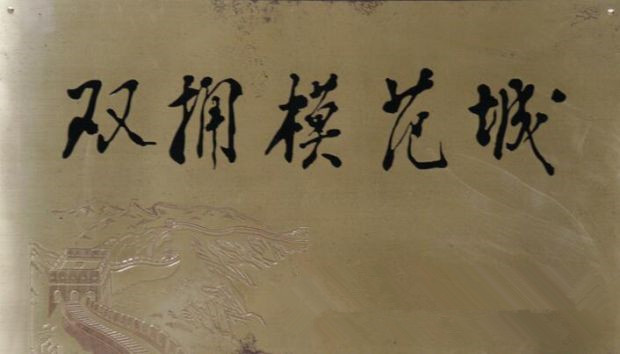 双拥模范城